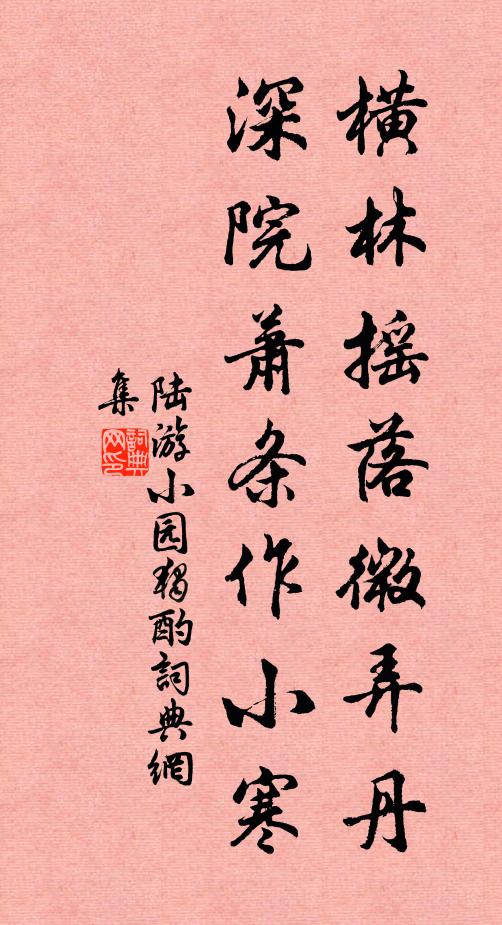 横林摇落微弄丹
深院萧条作小寒
陆游小园独酌詞典網
集
詞典网印